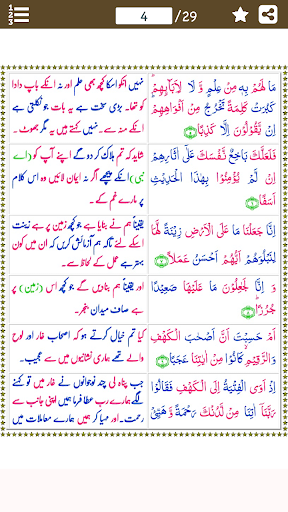 4 /29
مَا لَهُمْ بِهٖ مِنْ عِلْمٍ وَّ لَا لِاٰبَآئِهِمْ ؕ
كَبُرَتْ كَلِمَةً تَخْرُجُ مِنْ اَفْوَاهِهِمْ ؕ
اِنْ يَّقُوْلُوْنَ اِلَّا كَذِبًا ﴿۵﴾
نہیں انکو اسکا کچھ بھی علم اور نہ انکے باپ دادا
کو تھا۔ بڑی سخت ہے یہ بات جو نکلتی ہے
انکے منہ سے۔ نہیں کہتے ہیں یہ مگر جھوٹ۔
فَلَعَلَّكَ بَاخِعٌ نَّفْسَكَ عَلٰٓى اٰثَارِهِمْ
اِنْ لَّمْ يُؤْمِنُوْا بِهٰذَا الْحَدِيْثِ
اَسَفًا ﴿۶﴾
شاید کہ تم ہلاک کر دو گے اپنے آپ کو (اے
نبی) انکے پیچھے اگر نہ ایمان لائیں وہ اس کلام
پر مارے غم کے۔
اِنَّا جَعَلْنَا مَا عَلَى الْاَرْضِ زِيْنَةً لَّهَا
لِنَبْلُوَهُمْ اَيُّهُمْ اَحْسَنُ عَمَلًا ﴿۷﴾
یقیناً ہم نے بنایا ہے جو کچھ زمین پر ہے زینت
اسکے لئے تاکہ ہم آزمائش کریں کہ ان میں کون
بہتر ہے عمل کے لحاظ سے۔
وَ اِنَّا لَجٰعِلُوْنَ مَا عَلَيْهَا صَعِيْدًا
جُرُزًا ؕ ﴿۸﴾
اور یقیناً ہم بنا دیں گے جو کچھ اس (زمین) پر
ہے صاف میدان بنجر۔
اَمْ حَسِبْتَ اَنَّ اَصْحٰبَ الْكَهْفِ
وَالرَّقِيْمِ كَانُوْا مِنْ اٰيٰتِنَا عَجَبًا ﴿۹﴾
کیا تم خیال کرتے ہو کہ اصحاب غار اور لوح
والے تھے ہماری نشانیوں میں سے عجیب۔
اِذْ اَوَى الْفِتْيَةُ اِلَى الْكَهْفِ فَقَالُوْا
رَبَّنَاۤ اٰتِنَا مِنْ لَّدُنْكَ رَحْمَةً وَّ هَيِّئْ
جب پناہ لی چند نوجوانوں نے غار میں تو کہنے
لگے ہمارے رب عطا فرما ہمیں اپنی جانب سے
رحمت۔ اور مہیا کر ہمیں ہمارے معاملات میں